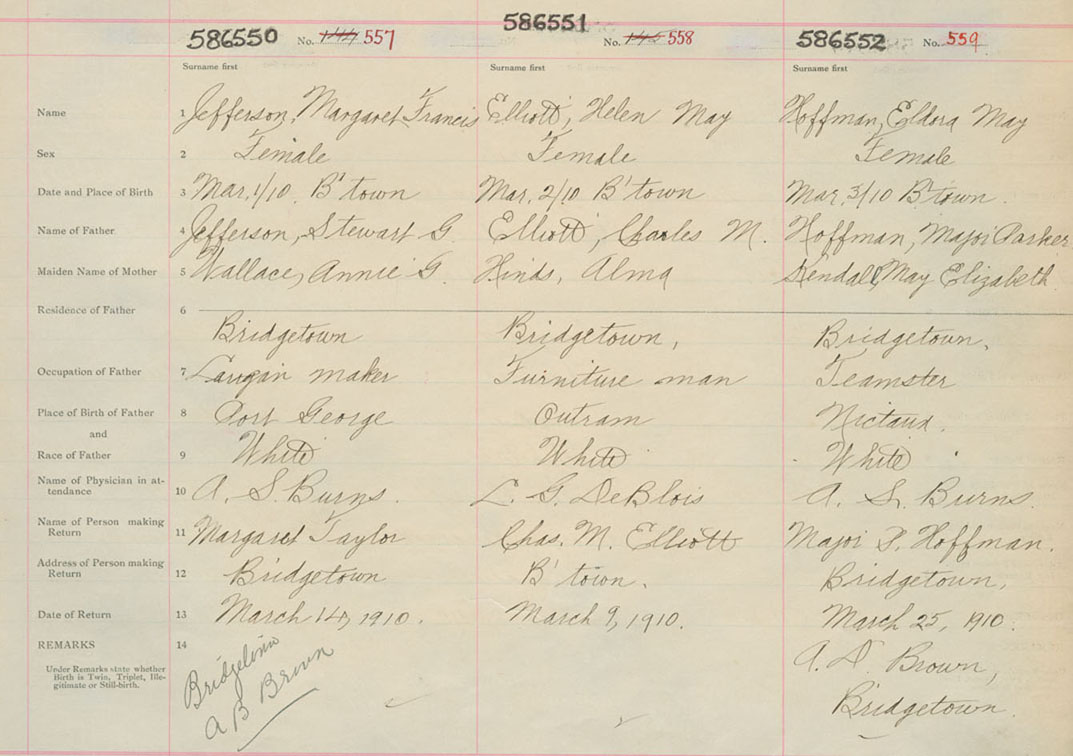 586550 No. 144 557 586551 No. 145 558 586552 No. 559
Surname first Surname first Surname first
Name 1 Jefferson, Margaret Francis Elliott, Helen May Hoffman, Eldora May
Sex 2 Female Female Female
Date and Place of Birth 3 Mar. 1/10. B'town Mar. 2/10 B'town Mar. 3/10 B'town.
Name of Father 4 Jefferson, Stewart G. Elliott, Charles M. Hoffman, Major Parker
Maiden Name of Mother 5 Wallace, Annie G. Hinds, Alma Kendall, May Elizabeth
Residence of Father 6
Bridgetown Bridgetown, Bridgetown.
Occupation of Father 7 Larigan maker Furniture man Teamster
Place of Birth of Father 8 Port George Outram Nictaux.
and
Race of Father 9 White White White
Name of Physician in at-
tendance 10 A. S. Burns. L. G. DeBlois A. S. Burns.
Name of Person making
Return 11 Margaret Taylor Chas. M. Elliott Major P. Hoffman.
Address of Person making
Return 12 Bridgetown B'town. Bridgetown,
Date of Return 13 March 14, 1910. March 9, 1910. March 25, 1910.
REMARKS 14
Under Remarks state whether
Birth is Twin, Triplet, Ille-
gitimate or Still-birth.
A B Brown
Brown,
Bridgetown.